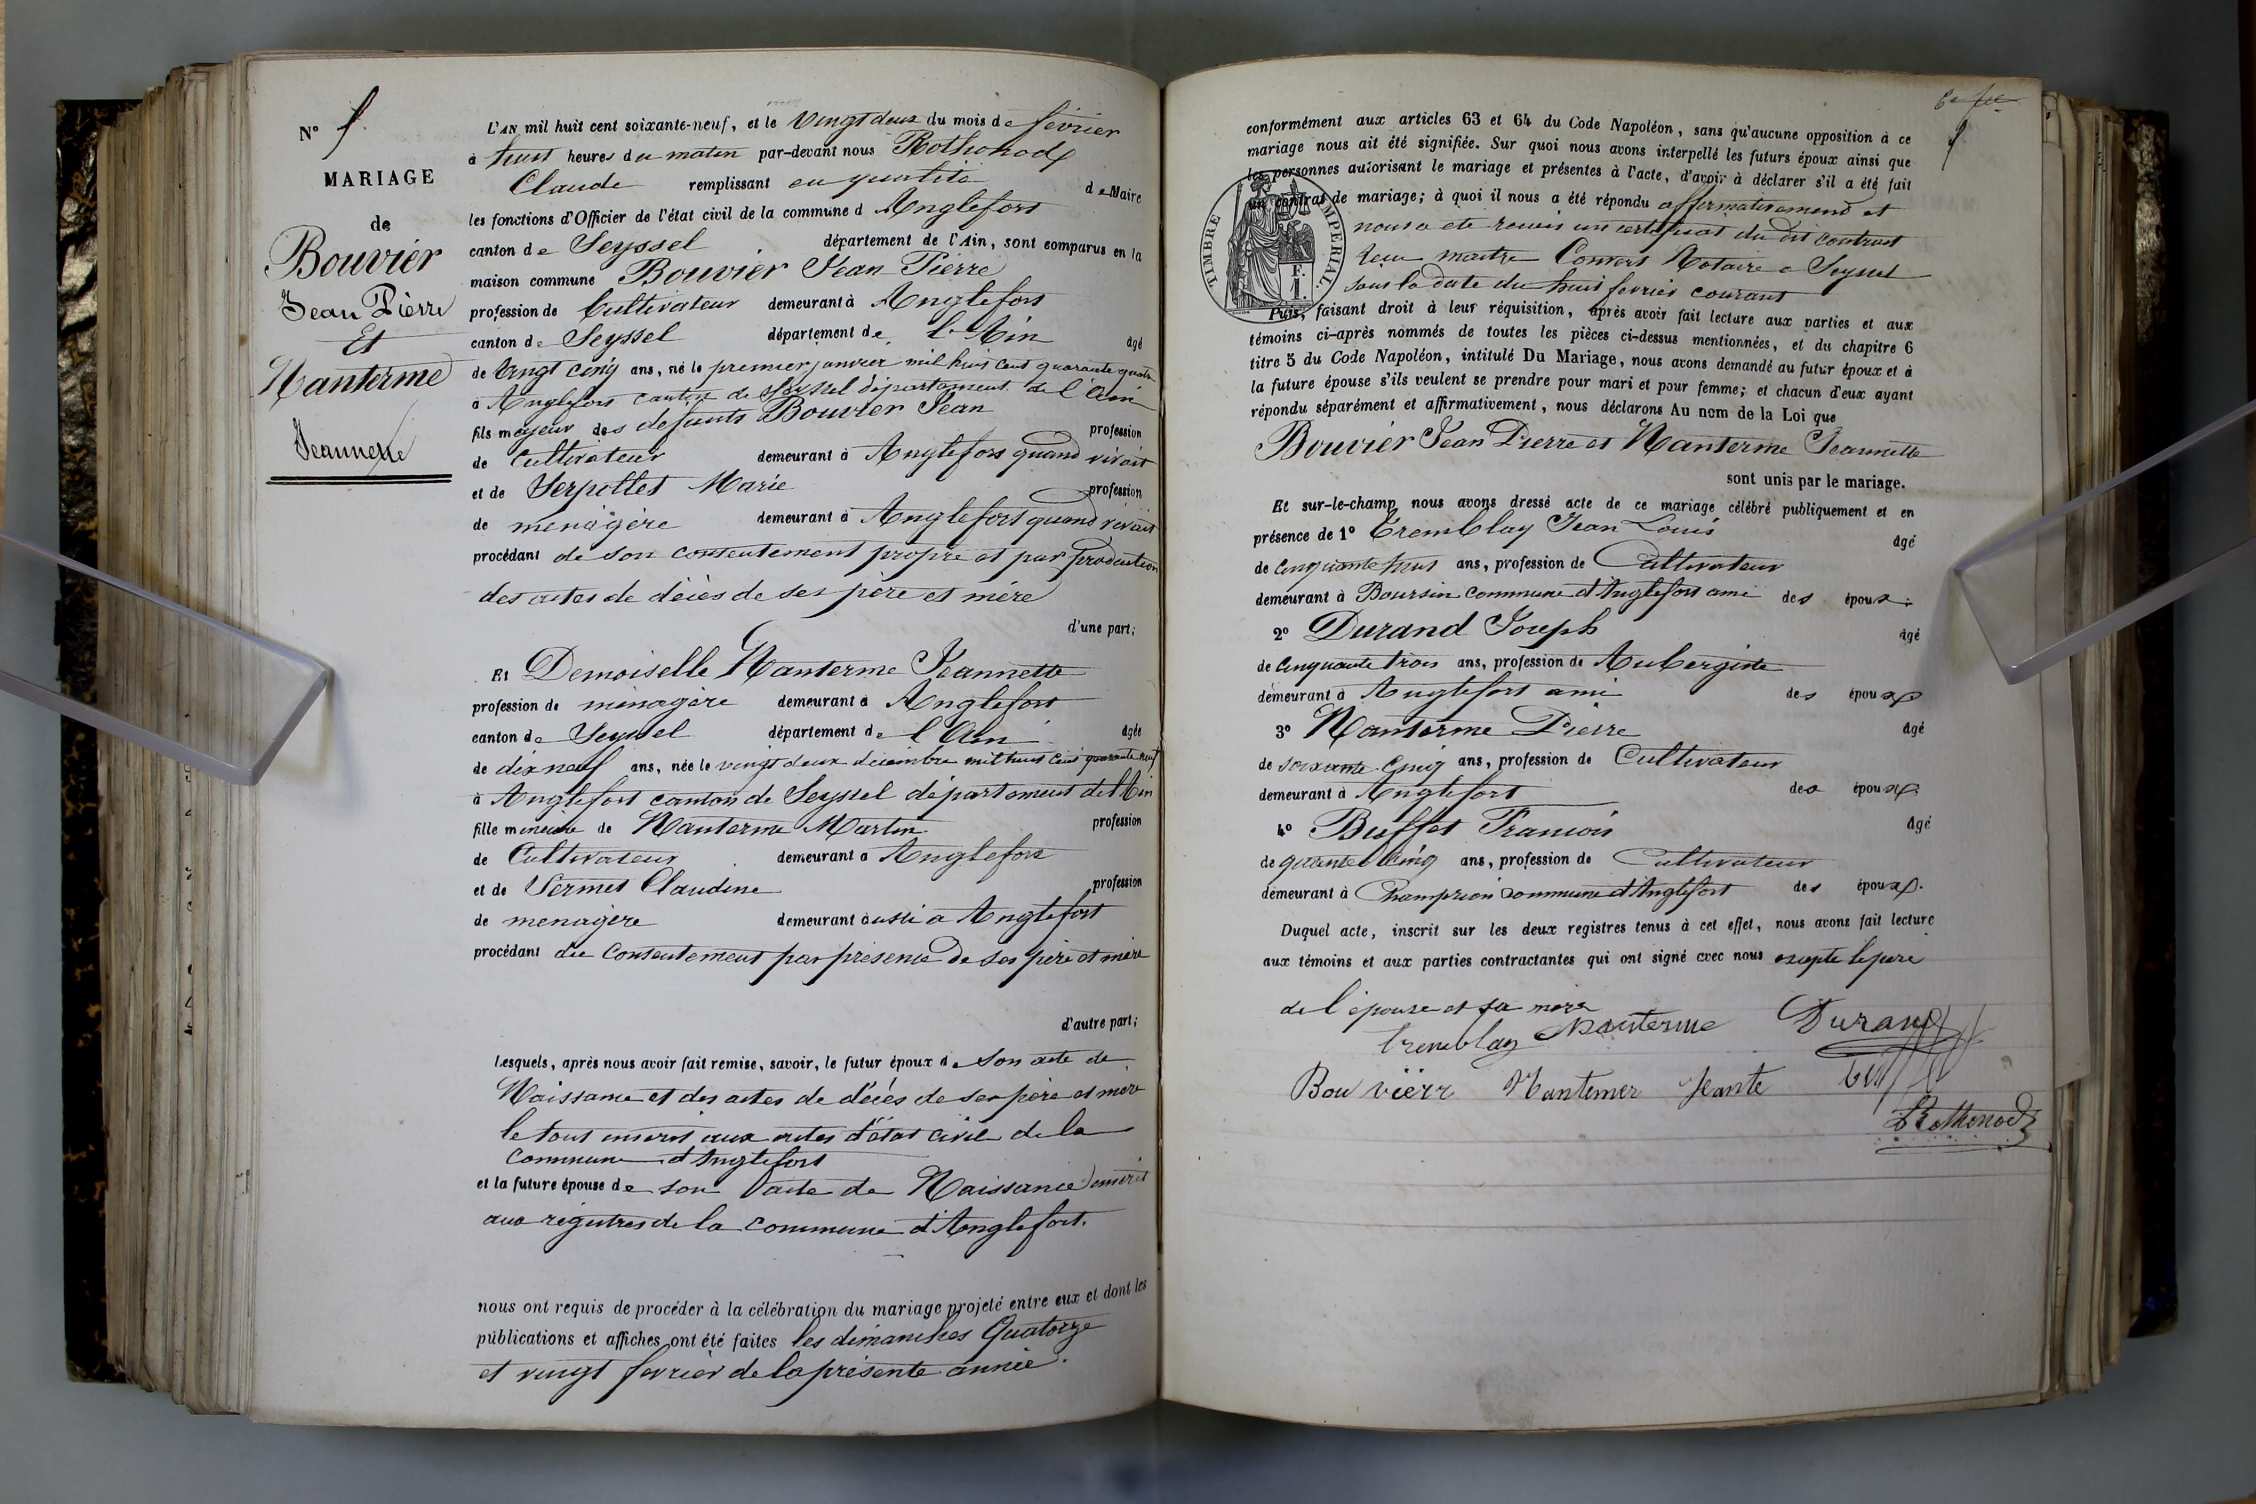 N°
MARIAGE
de
Bouvier
Jean Pierre
Et
Nanterme
Jeannette
L'AN mil huit cent soixante-neuf, et le vingt deux du mois de février
à huit heures du matin par-devant nous Rothonod
Claude remplissant en qualité de Maire
les fonctions d'Officier de l'état civil de la commune d Anglefort
canton de Seyssel département de l'Ain, sont comparus en la
maison commune Bouvier Jean Pierre
profession de Cultivateur demeurant à Anglefort
canton de Seyssel département de l'Ain âgé
de vingt cinq ans, né le premier janvier mil huit cent quarante quatre
à Anglefort canton de Seyssel département de l'Ain
fils majeur des defunts Bouvier Jean profession
de Cultivateur demeurant à Anglefort quand vivait
et de Serpollet Marie profession
de menagère demeurant à Anglefort quand vivait
procédant de son consentement propre et par production
des actes de décès de ses père et mère
d'une part;
Et Demoiselle Nanterme Jeannette
profession de ménagère demeurant à Anglefort
canton de Seyssel département de l'Ain âgée
de dix neuf ans, née le vingt deux décembre mil huit cent quarante neuf
à Anglefort canton de Seyssel département de l'Ain
fille mineure de Nanterme Martin profession
de Cultivateur demeurant à Anglefort
et de Sermet Claudine profession
de menagère demeurant aussi a Anglefort
procédant du consentement par présence de ses père et mère
d'autre part;
Lesquels, après nous avoir fait remise, savoir, le futur époux de son acte de
Naissance et des actes de décés de ses père et mère
le tout inserit aux actes d'état civil de la
commune d'Anglefort
et la future épouse de son acte de Naissance inserit
aux régistres de la commune d'Anglefort.
nous ont requis de procéder à la célébration du mariage projeté entre eux et dont les
publications et affiches ont été faites les dimanches Quatorze
et vingt fevrier de la présente année.
conformément aux articles 63 et 64 du Code Napoléon, sans qu'aucune opposition à ce
mariage nous ait été signifiée. Sur quoi nous avons interpellé les futurs époux ainsi que
les personnes autorisant le mariage et présentes à l'acte, d'avoir à déclarer s'il a été fait
un contrat de mariage; à quoi il nous a été répondu affirmativement et
nous a ete remis un certificat du dit contrat
recu maitre Notaire a Seyssel
sous la date du huit fevrier courant
TIMBRE IMPERIAL.
Puis, faisant droit à leur réquisition, après avoir fait lecture aux parties et aux
témoins ci-après nommés de toutes les pièces ci-dessus mentionnées, et du chapitre 6
titre 5 du Code Napoléon, intitulé Du Mariage, nous avons demandé au futur époux et à
la future épouse s'ils veulent se prendre pour mari et pour femme; et chacun d'eux ayant
répondu séparément et affirmativement, nous déclarons Au nom de la Loi que
Bouvier Jean Pierre et Nanterme Jeannette
sont unis par le mariage.
Et sur-le-champ nous avons dressé acte de ce mariage célébré publiquement et en
présence de 1° Tremblay Jean Louis âgé
de cinquante huit ans, profession de Cultivateur
demeurant à Boursin commune d'Anglefort ami des époux
2° Durand Joseph âgé
de cinquante trois ans, profession de Aubergiste
demeurant à Anglefort ami des époux
3° Nanterme Pierre âgé
de soixante cinq ans, profession de Cultivateur
demeurant à Anglefort des époux
4° Buffet Francois âgé
de quarante cinq ans, profession de Cultivateur
demeurant à Champrion commune d'Anglefort des époux
Duquel acte, inscrit sur les deux registres tenus à cet effet, nous avons fait lecture
aux témoins et aux parties contractantes qui ont signé avec nous excepte le père
de l'épouse et sa mère
tremblay Nanterme Durand
Bouvierr Nantemer Jeante
Rothonod